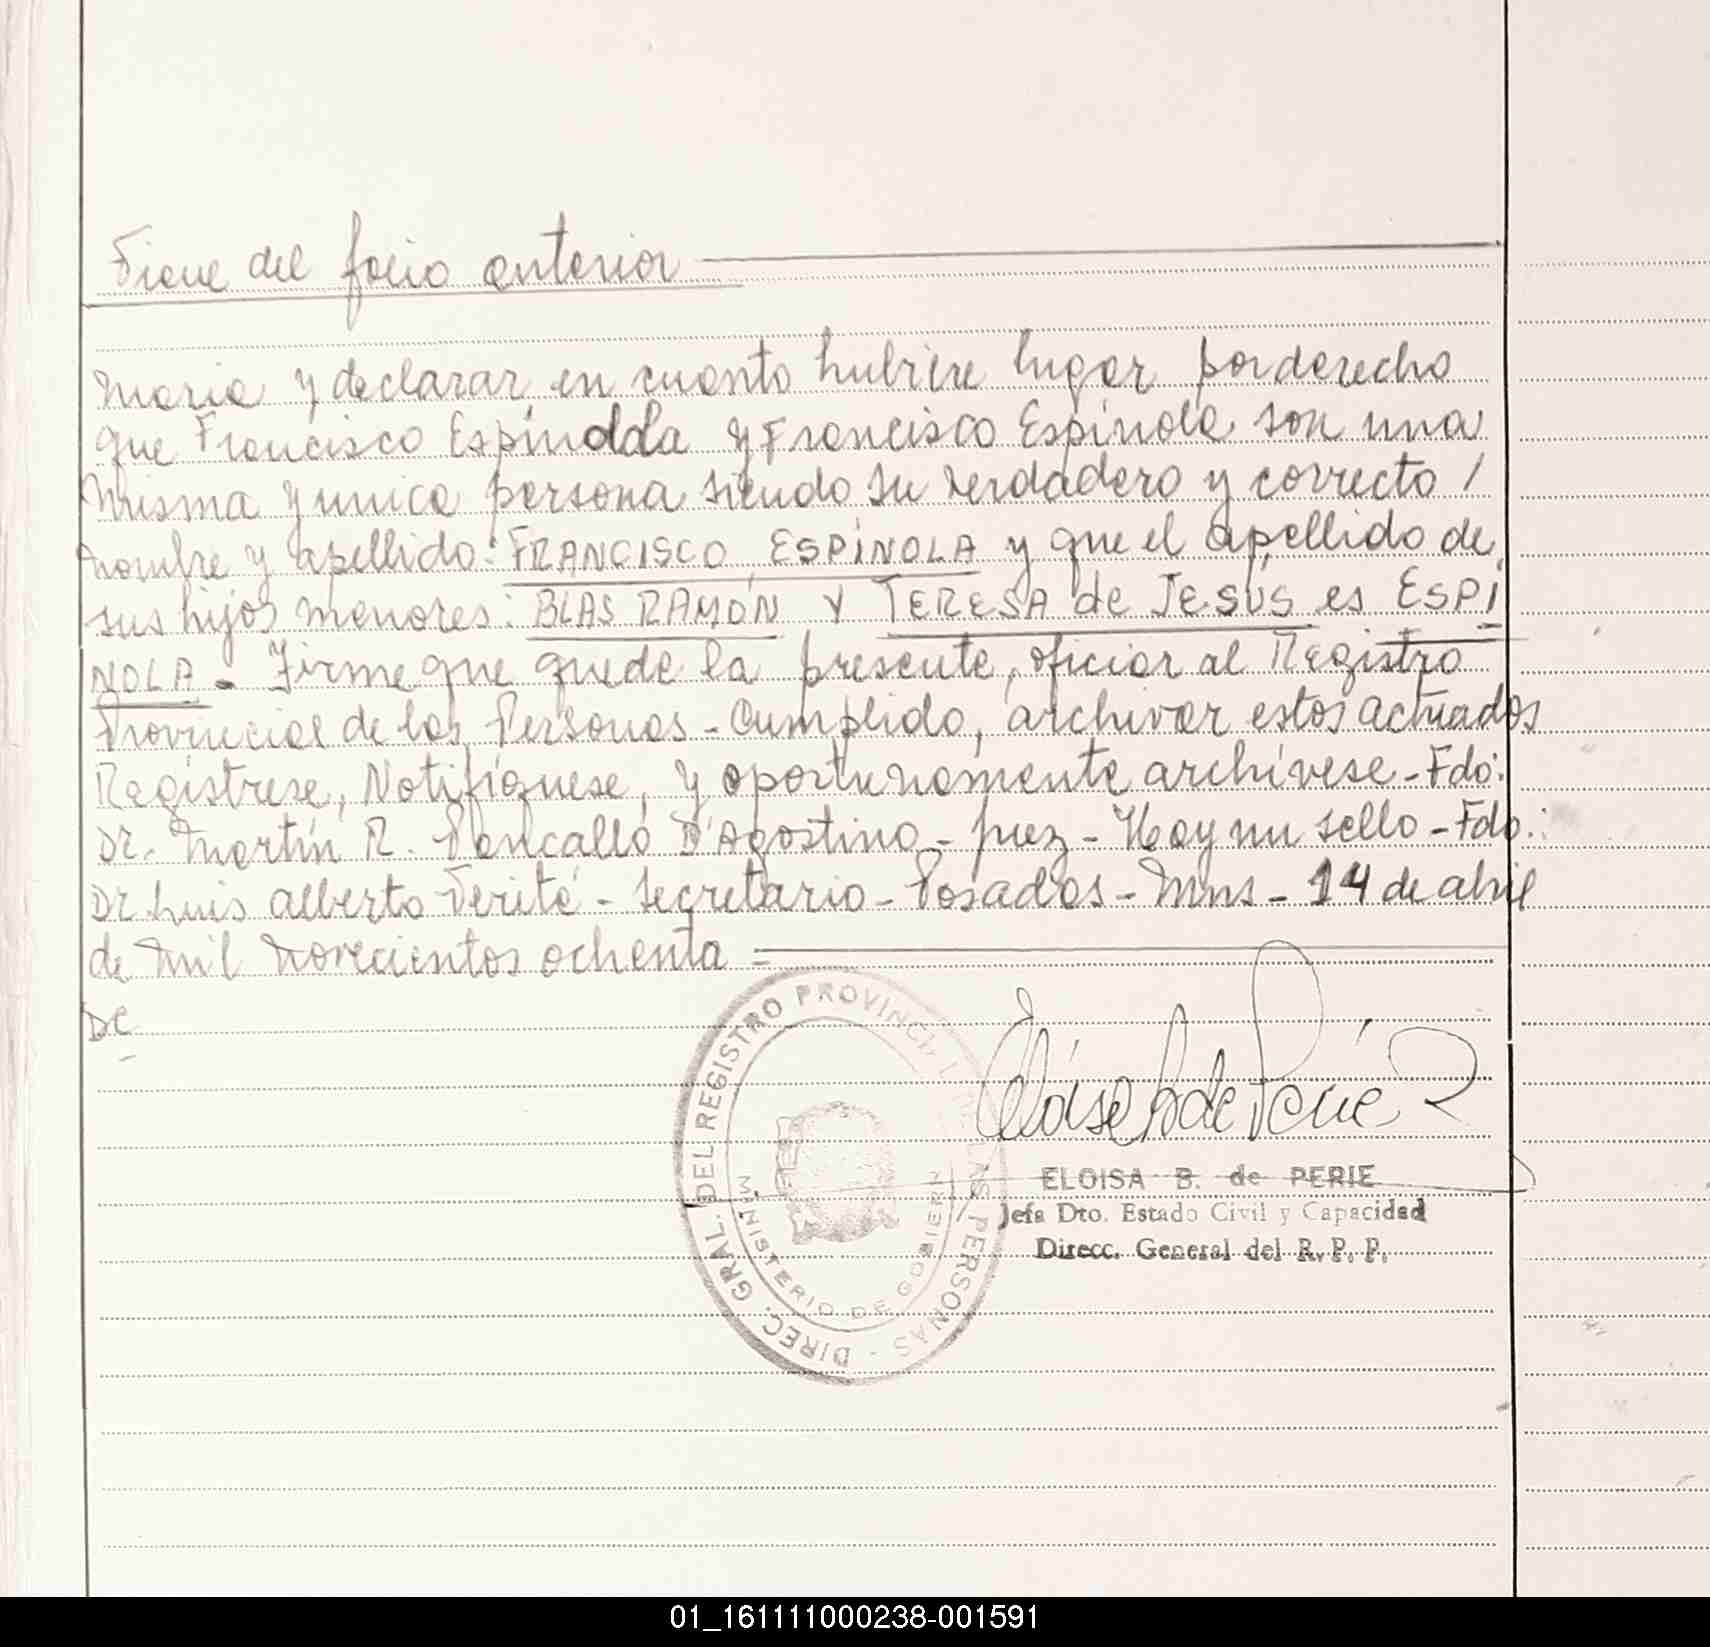 Viene del folio anterior
maria y declarar en cuanto hubiere lugar por derecho
que Francisco Espíndola y Francisco Espínola son una
misma y unica persona siendo su verdadero y correcto /
nombre y apellido: FRANCISCO ESPÍNOLA y que el apellido de
sus hijos menores: BLAS RAMÓN Y TERESA de JESÚS es ESPÍ
NOLA - Firme que quede la presente, oficiar al Registro
Provincial de las Personas - Cumplido, archivar estos actuados
Regístrese, Notifíquese, y oportunamente archívese - Fdo:
Dr. Martín R. D'Agostino - juez - Hay un sello - Fdo.:
Dr Luis Alberto Verité - Secretario - Posadas - Mns - 14 de abril
de mil novecientos ochenta =
DE
DIREC. GRAL. DEL REGISTRO PROVINCIAL DE LAS PERSONAS -
MINISTERIO DE GOBIERNO
ELOISA B. de PERIE
Jefa Dto. Estado Civil y Capacidad
Direcc. General del R. P. P.
01_161111000238-001591